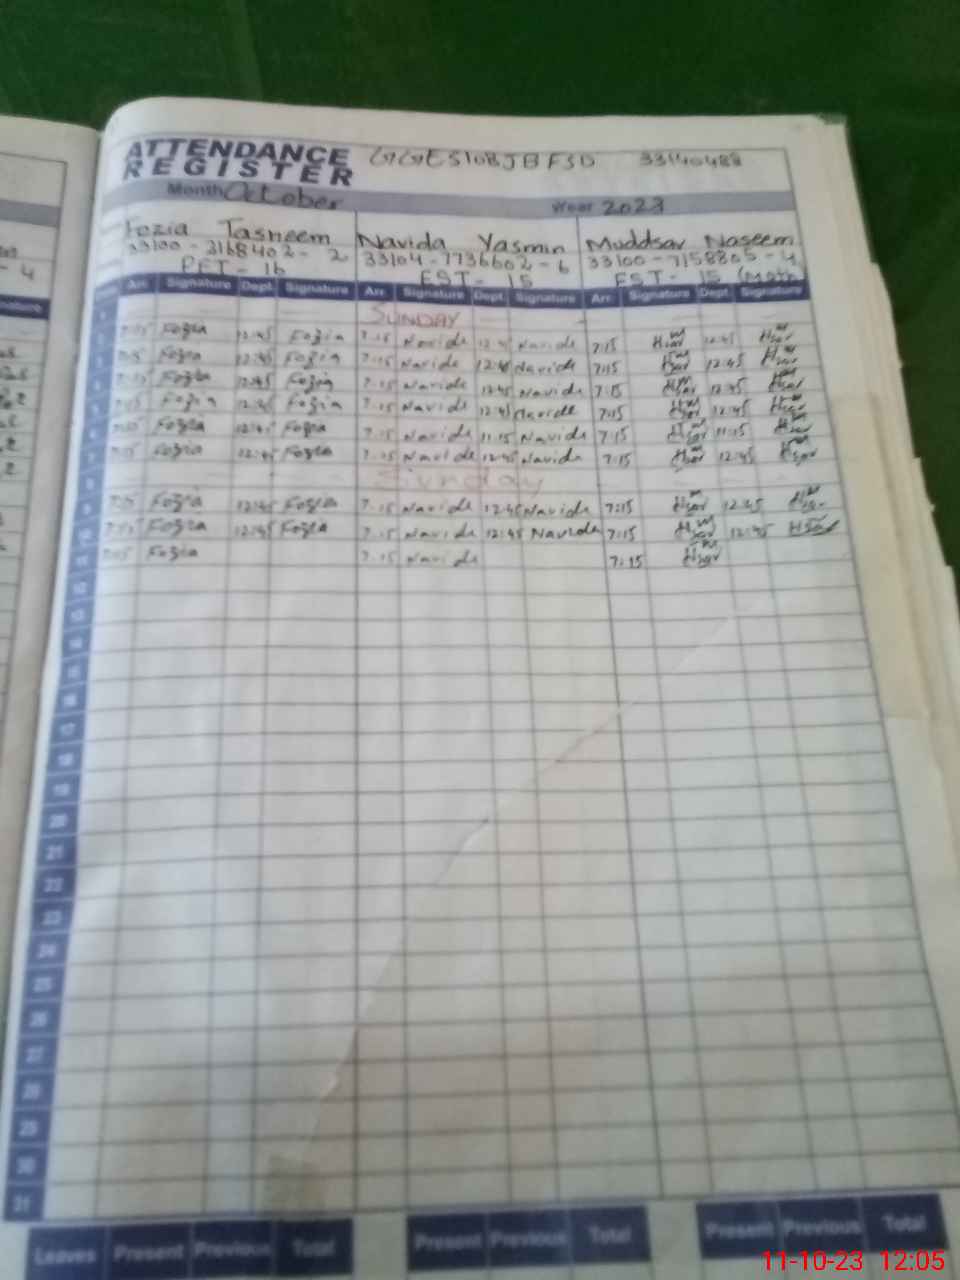 ATTENDANCE REGISTER GGES 108 JB FSD 33140488
Month October Year 2023
Fozia Tasneem Navida Yasmin Muddsar Naseem
33100-3168402-2 33104-7736602-6 33100-7158805-4
PET-16 EST-15 EST-15 (Math
Arr. Signature Dept. Signature Arr. Signature Dept. Signature Arr. Signature Dept. Signature
1 SUNDAY
2 7:15 Fozia 12:45 Fozia 7:15 Navida 12:45 Navida 7:15 12:45
3 7:15 Fozia 12:45 Fozia 7:15 Navida 12:45 Navida 7:15 12:45
4 7:15 Fozia 12:45 Fozia 7:15 Navida 12:45 Navida 7:15 12:45
5 7:15 Fozia 12:45 Fozia 7:15 Navida 12:45 Navida 7:15 12:45
6 7:15 Fozia Fozia 7:15 Navida 11:15 Navida 7:15 11:15
7 7:15 Fozia 12:45 Fozia 7:15 Navida 12:45 Navida 7:15 12:45
8 Sunday
9 7:15 Fozia 12:45 Fozia 7:15 Navida 12:45 Navida 7:15 12:45
10 7:15 Fozia 12:45 Fozia 7:15 Navida 12:45 Navida 7:15 12:45
11 7:15 Fozia 7:15 Navida 7:15
12
13
14
15
16
17
18
19
20
21
22
23
24
25
26
27
28
29
30
31
Leaves Present Previous Total Present Previous Total Present Previous Total
11-10-23 12:05